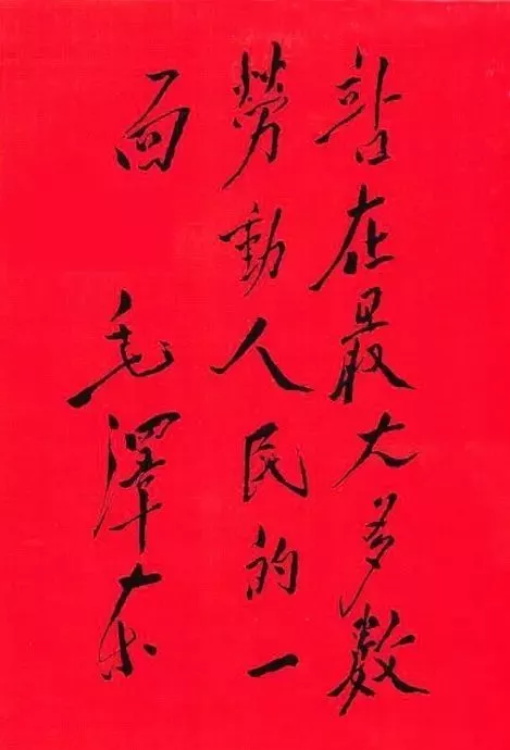 站在最大多数
勞動人民的一
面
毛澤东